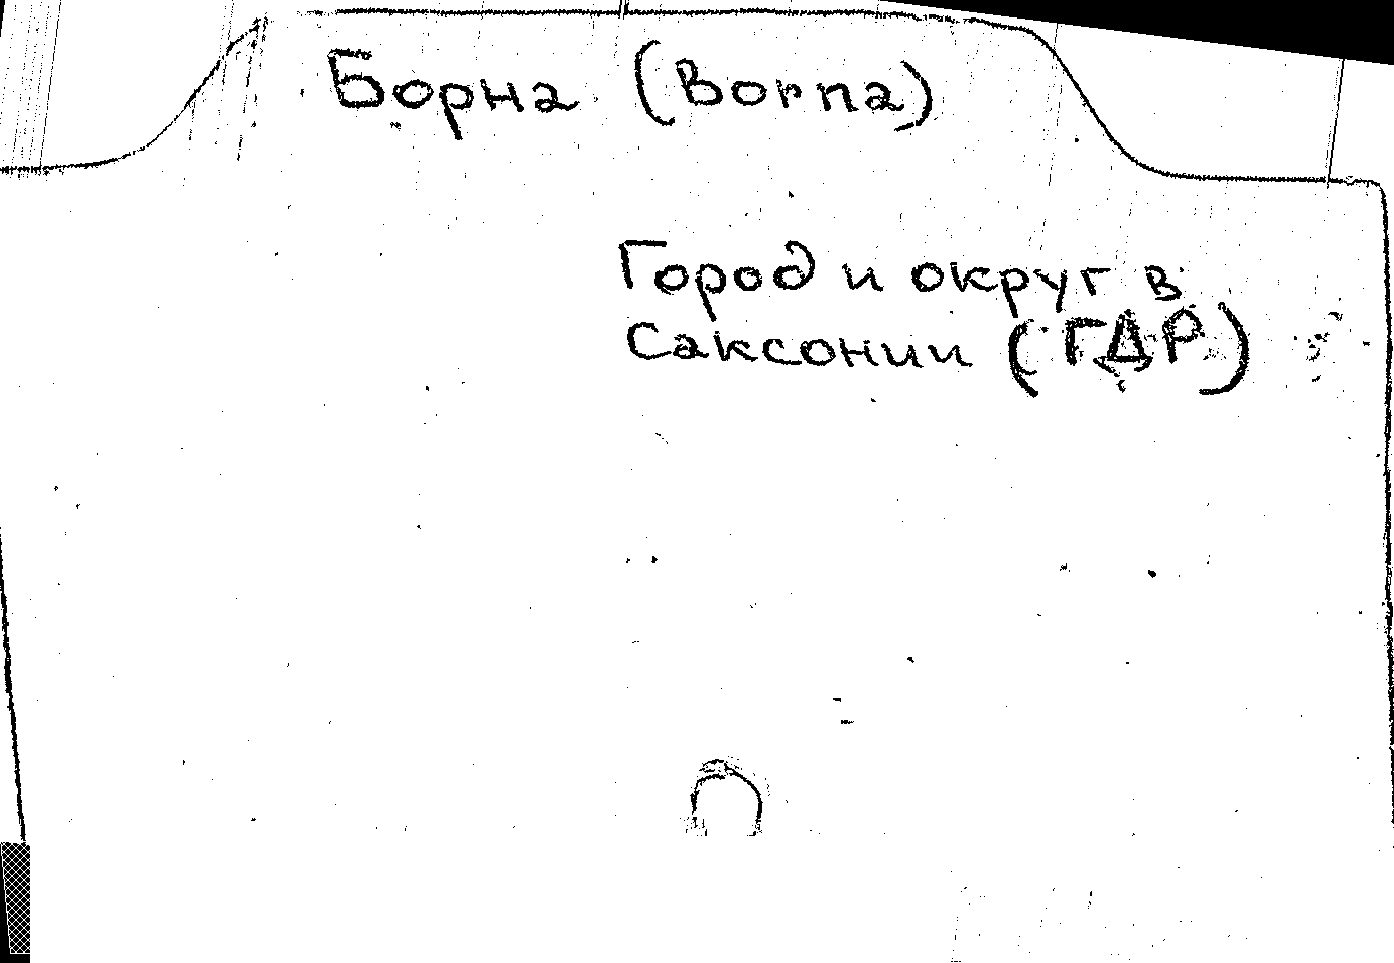 Борна (Borna)
Город и округ в
Саксонии (ГДР)